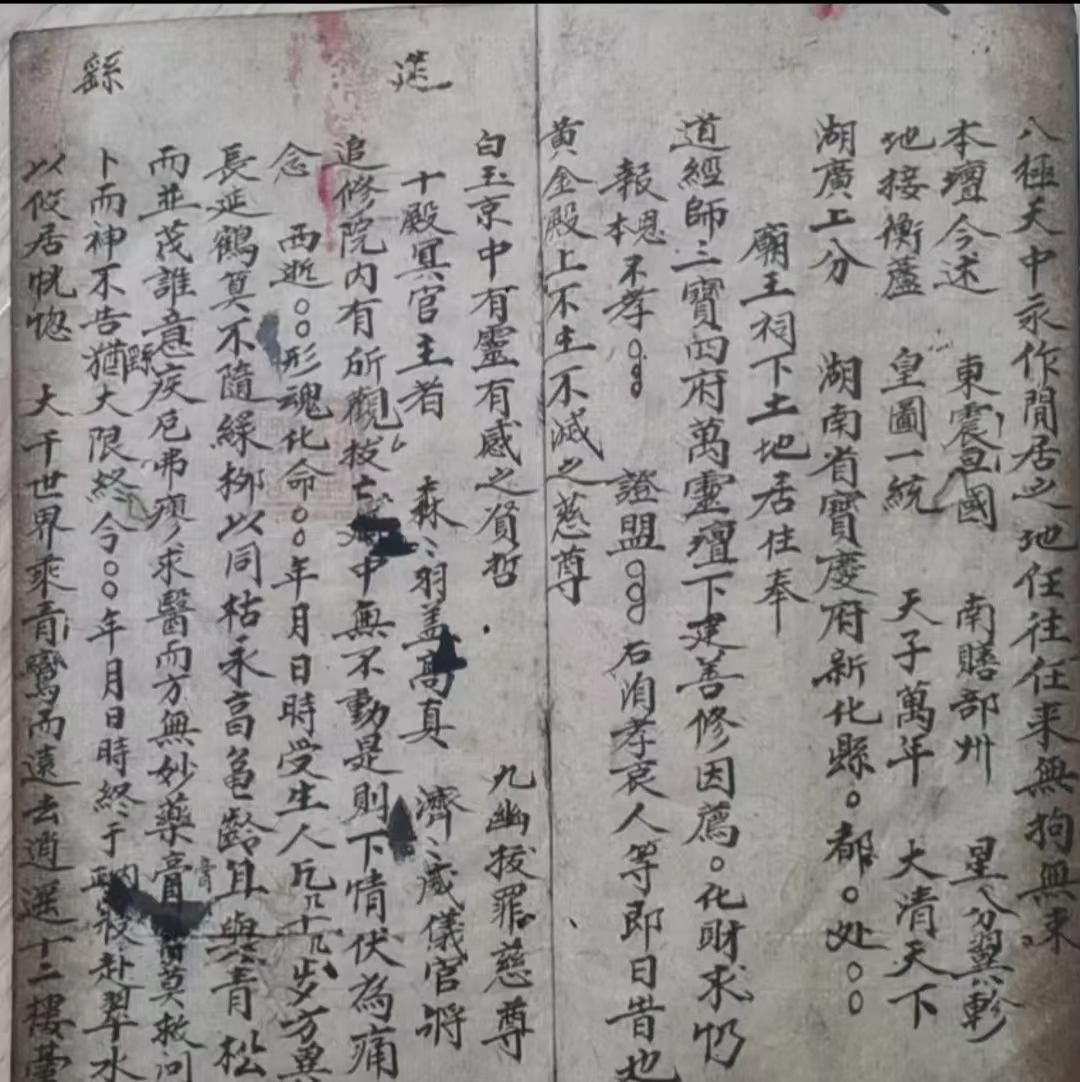 八極天中永作閒居之地任往任来無拘無束
本壇今述 東震旦國 南贍部州 星分翼軫
地接衡蘆 皇圖一統 天子萬年 大清天下
湖廣上分 湖南省寳慶府新化縣○都○处○○
廟王祠下土地居住奉
道經師三寳四府萬靈壇下建善修因薦○化財求
報本恩不孝○○ 證盟○○右洎孝哀人等即日昔也
黄金殿上不生不滅之慈尊
白玉京中有靈有感之贤哲 九幽拔罪慈尊
十殿冥官主者 森〻羽盖高真 濟〻威儀官将
追修院内有所觀技亡中無不動是則下情伏為痛
念 西逝○○形魂化命○○年月日時受生人氏几十几歩方兾
長延鶴筭不隨緑栁以同枯永亯龜齡且與青松
而並茂誰意疾危弗廖求醫而方無妙藥膏肓莫救问
卜而神不告猶大限終今○○年月日時終于 赴翠水
以攸居恍惚 大千世界乘青鸞而遠去逍遥十二樓臺
繇